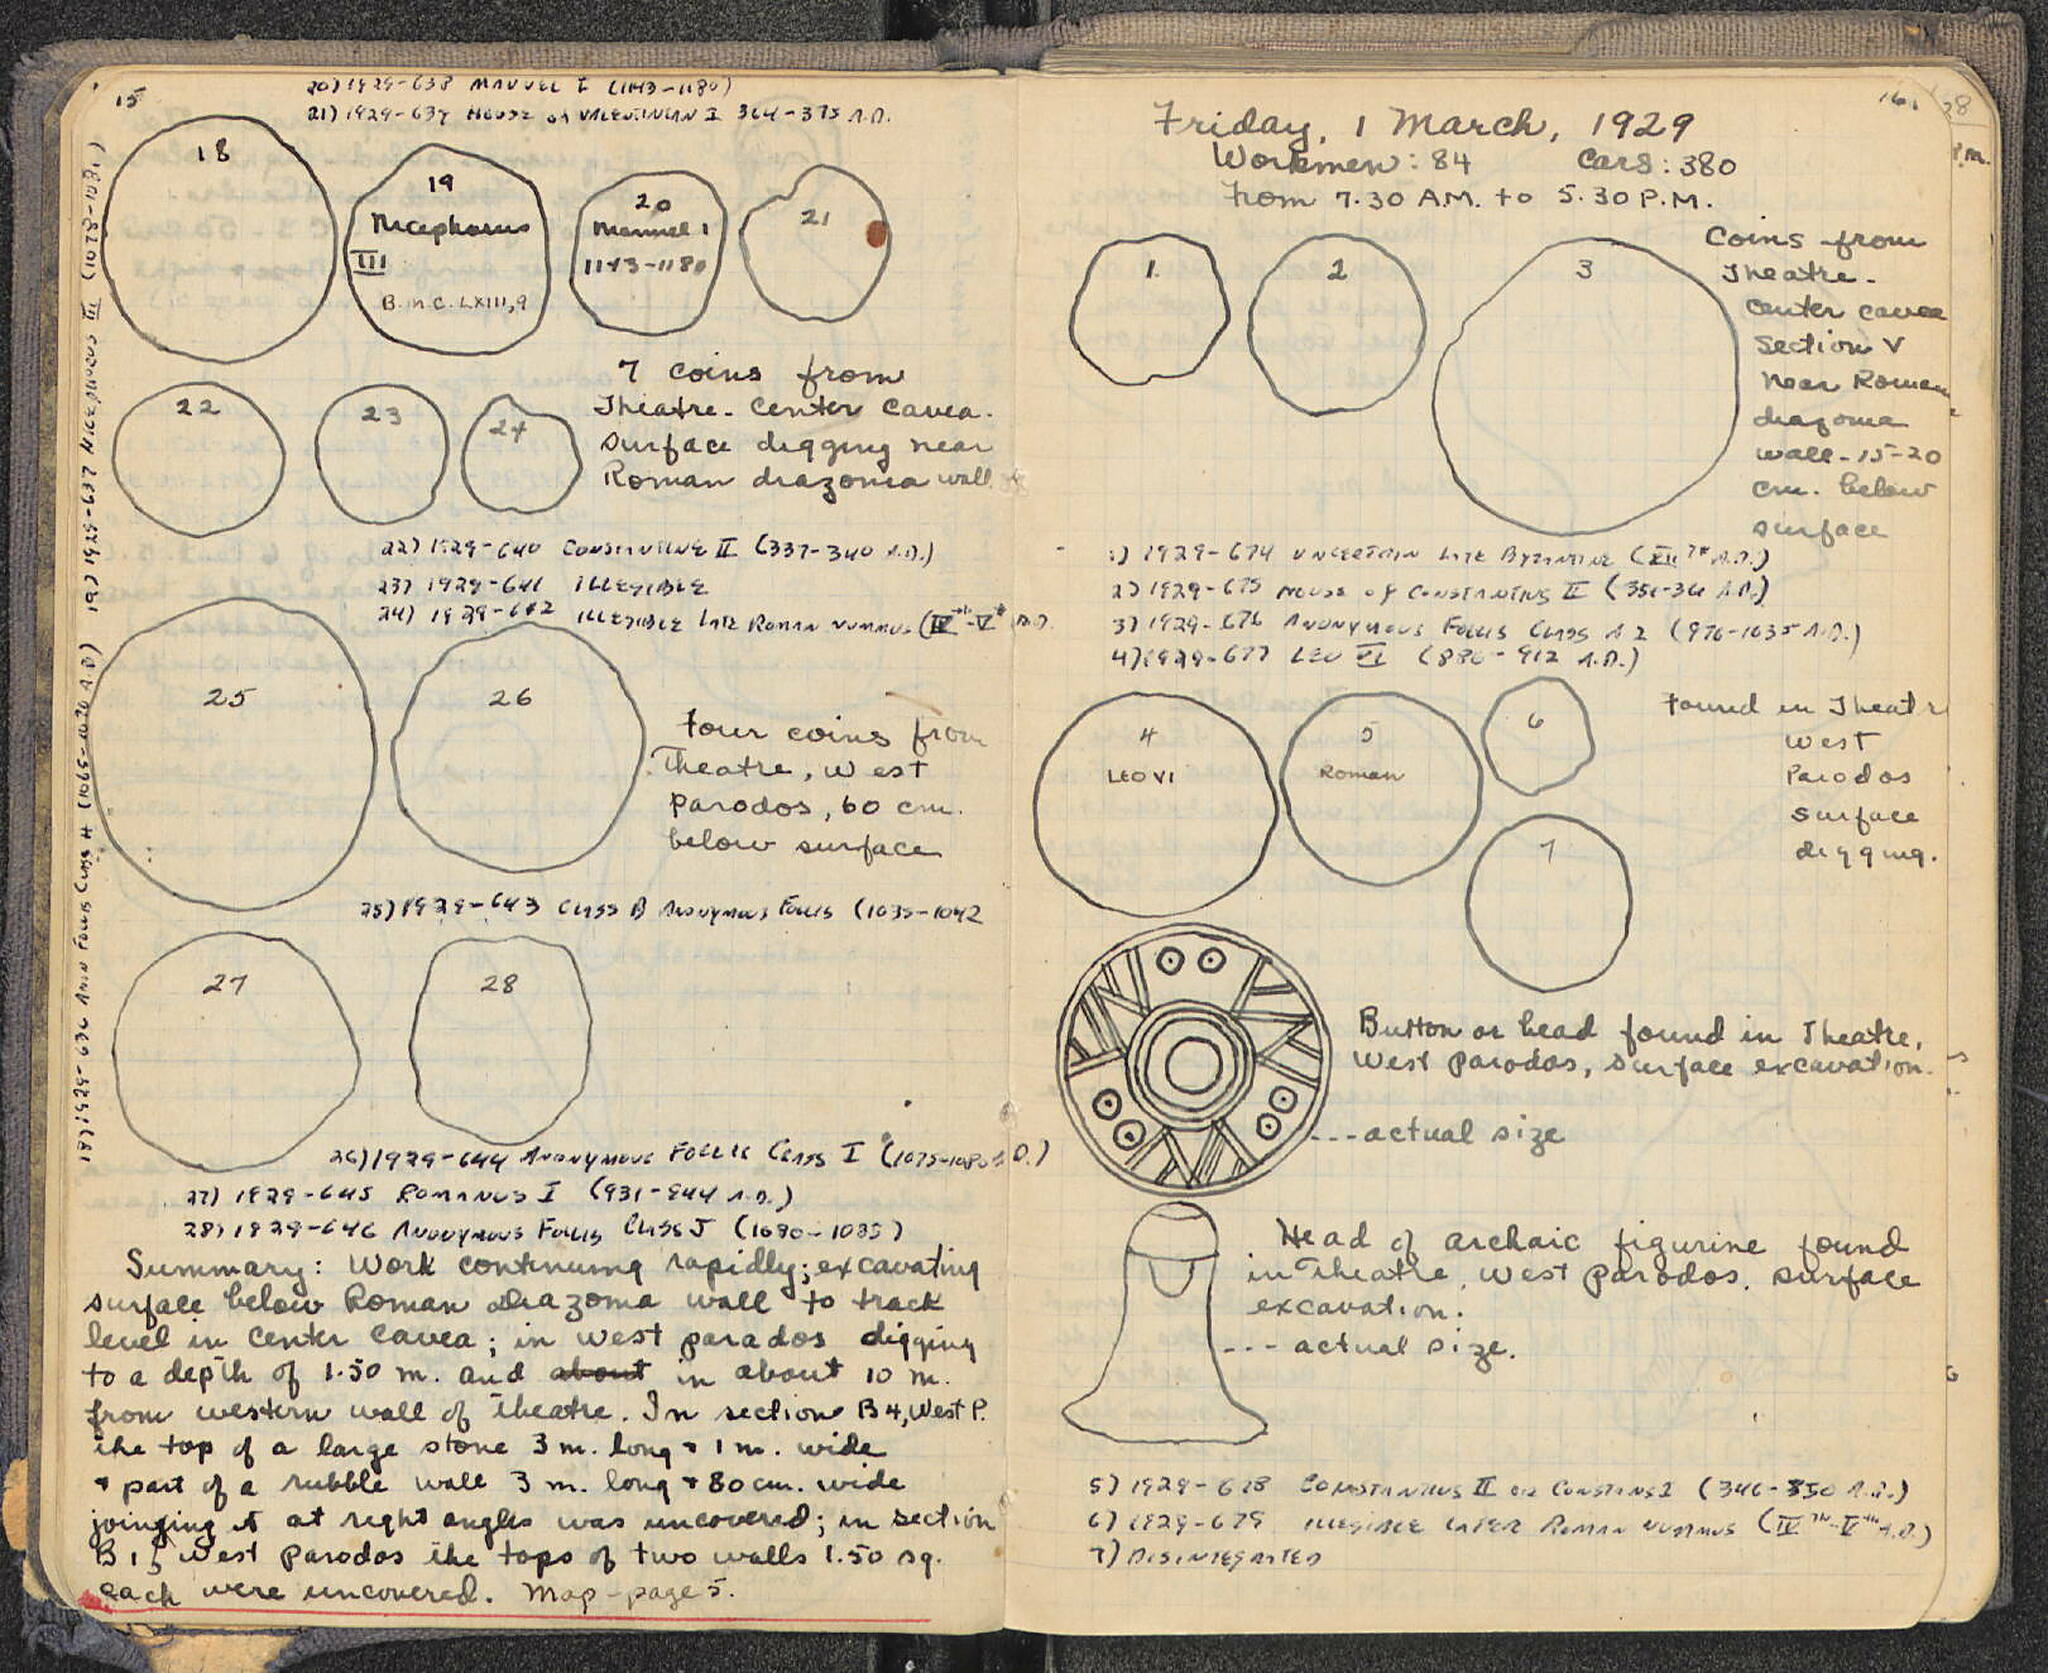 15
20) 1929-638 MANUEL I (1143-1180)
21) 1929-639 HOUSE OF VALENTINIAN I 364-375 A.D.
18
19
Nicephorus
III
B.M.C. LXIII,9
20
Manuel I
1143-1180
21
18) 1929-636 ANON FOLLIS CLASS H (1065-1070 A.D) 19) 1929-637 NICEPHORUS III (1078-1081)
22
23
24
7 coins from
Theatre - center cavea.
Surface digging near
Roman diazoma wall
22) 1929-640 CONSTANTINE II (337-340 A.D.)
23) 1929-641 ILLEGIBLE
24) 1929-642 ILLEGIBLE LATE ROMAN NUMMUS (IVth-Vth A.D.
25
26
Four coins from
Theatre, West
Parodos, 60 cm.
below surface
25) 1929-643 CLASS B ANONYMOUS FOLLIS (1035-1042
27
28
26) 1929-644 ANONYMOUS FOLLIS CLASS I (1075-1080 A.D.)
27) 1929-645 ROMANUS I (931-944 A.D.)
28) 1929-646 ANONYMOUS FOLLIS CLASS J (1080-1085)
Summary: Work continuing rapidly; excavating
surface below Roman diazoma wall to track
level in center cavea; in west parados digging
to a depth of 1.50 m. and about in about 10 m.
from western wall of theatre. In section B4, West P.
the top of a large stone 3 m. long + 1 m. wide
+ part of a rubble wall 3 m. long + 80 cm. wide
joinging it at right angles was uncovered; in section
West Parodos the tops of two walls 1.50 sq.
each were uncovered. Map - page 5.
16.
Friday, 1 March, 1929
Workmen: 84 Cars: 380
From 7.30 A.M. to 5.30 P.M.
1.
2
3
Coins from
Theatre -
center cavea
Section V
near Roman
diazoma
wall - 15-20
cm. below
surface
1) 1929-674 UNCERTAIN LATE BYZANTINE (XIITH A.D.)
2) 1929-675 HOUSE OF CONSTANTIUS II (351-361 A.D.)
3) 1929-676 ANONYMOUS FOLLIS CLASS A2 (976-1035 A.D.)
4) 1929-677 LEO VI (886-912 A.D.)
4
LEO VI
5
Roman
6
7
Found in Theatre
West
Parodos
surface
digging.
Button or bead found in Theatre,
West Parodos, surface excavation.
---actual size
Head of archaic figurine found
in Theatre, West Parodos, surface
excavation.
--- actual size.
5) 1929-678 CONSTANTIUS II OR CONSTANS I (346-350 A.D.)
6) 1929-679 ILLEGIBLE LATER ROMAN NUMMUS (IVTH-Vth A.D.)
7) DISINTEGRATED
P.M.